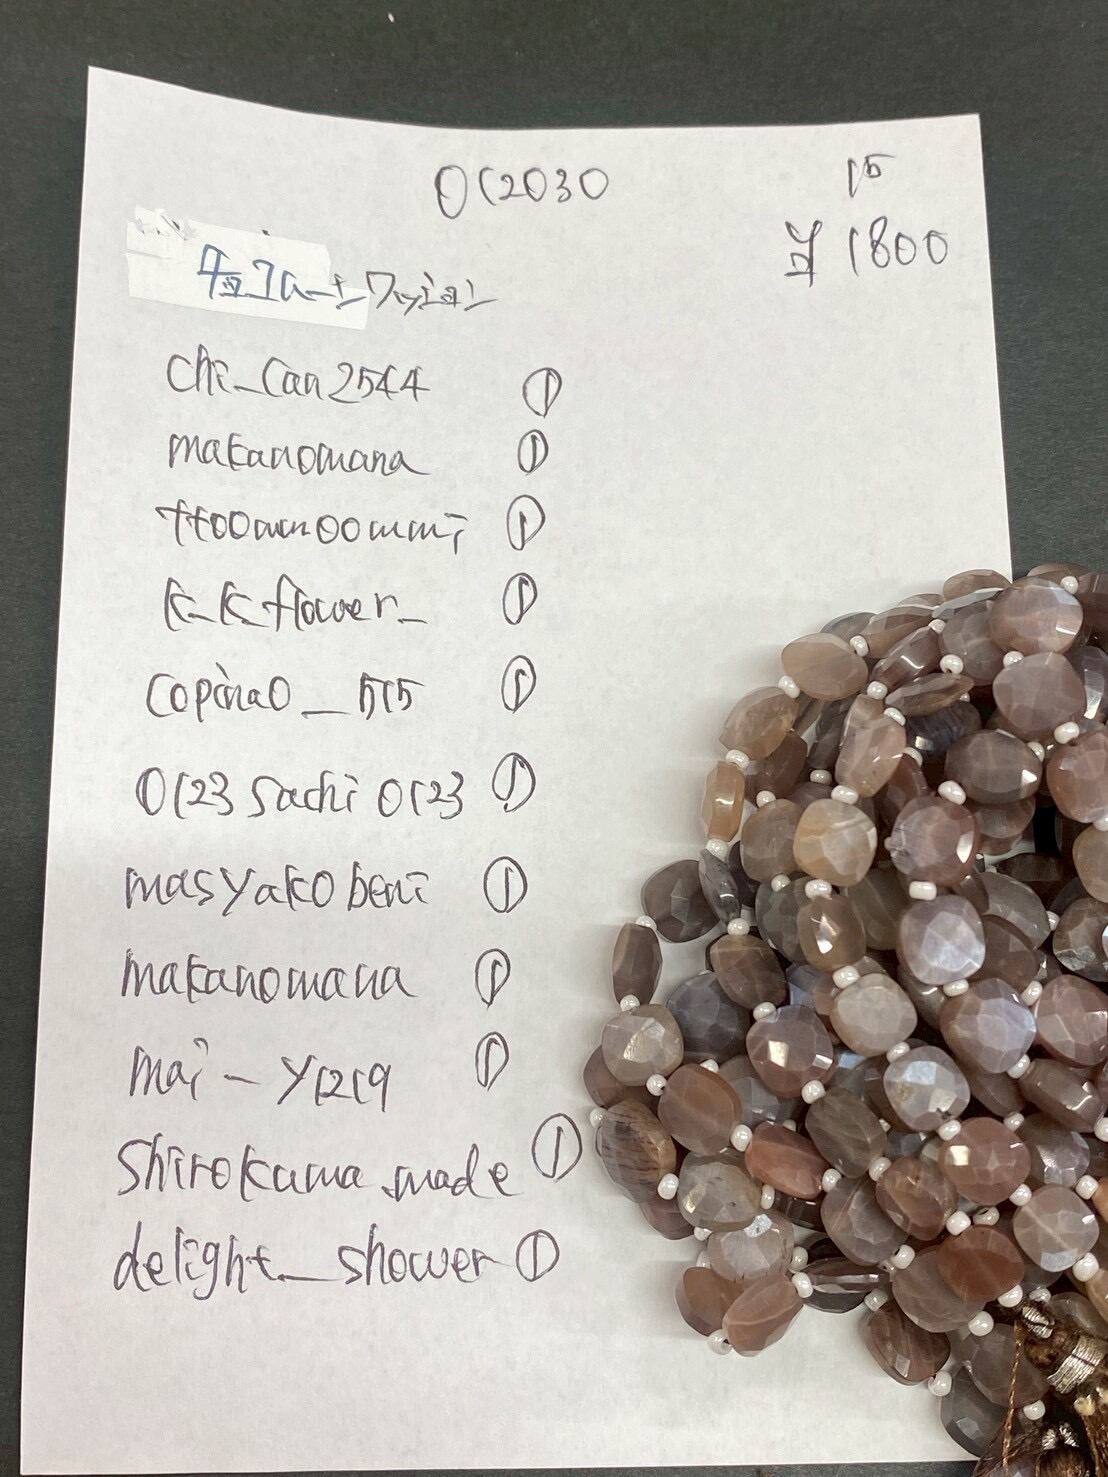 OC2030
15
¥1800
チョコムーンクッション
chi_can2544
makanomana
ttoommoommi
k_k_flower_
copinao_515
0123sachi0123
masyakobeni
makanomana
mai-y1219
shirokuma.made
delight_shower